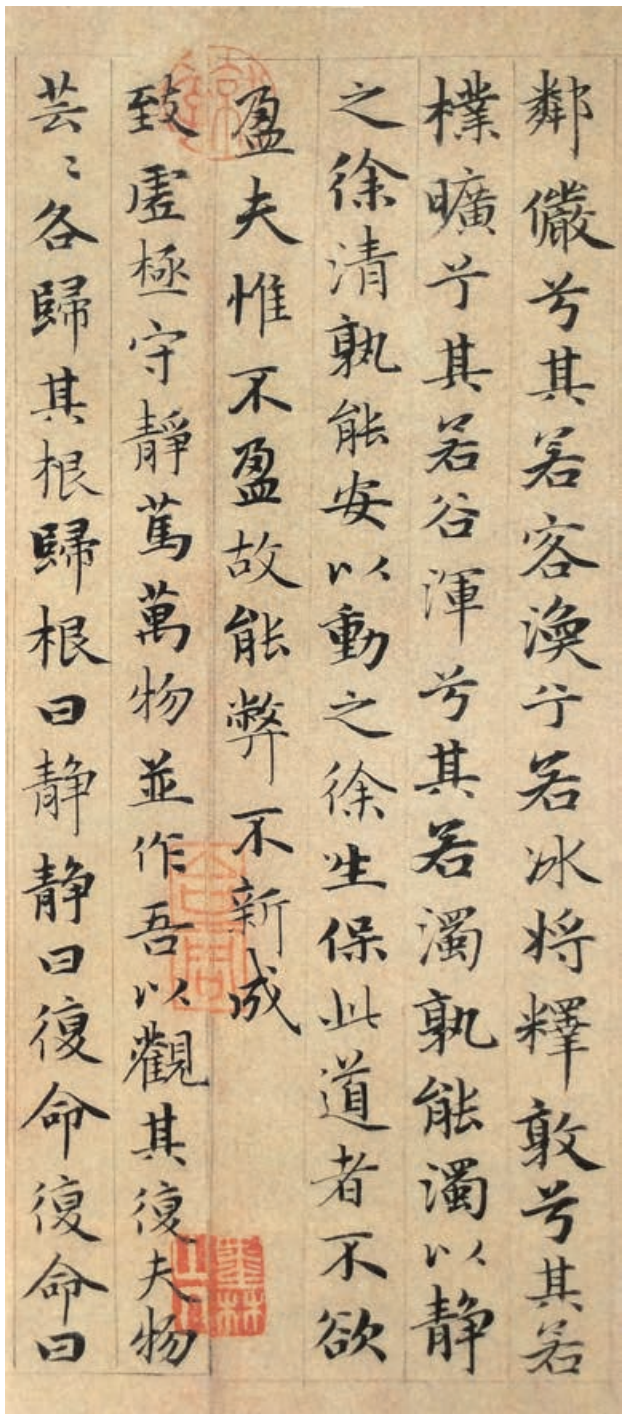 鄰儼兮其若客渙兮若冰将釋敦兮其若
樸曠兮其若谷渾兮其若濁孰能濁以静
之徐清孰能安以動之徐生保此道者不欲
盈夫惟不盈故能弊不新成
致虛極守靜篤萬物並作吾以觀其復夫物
芸〻各歸其根歸根曰静静曰復命復命曰